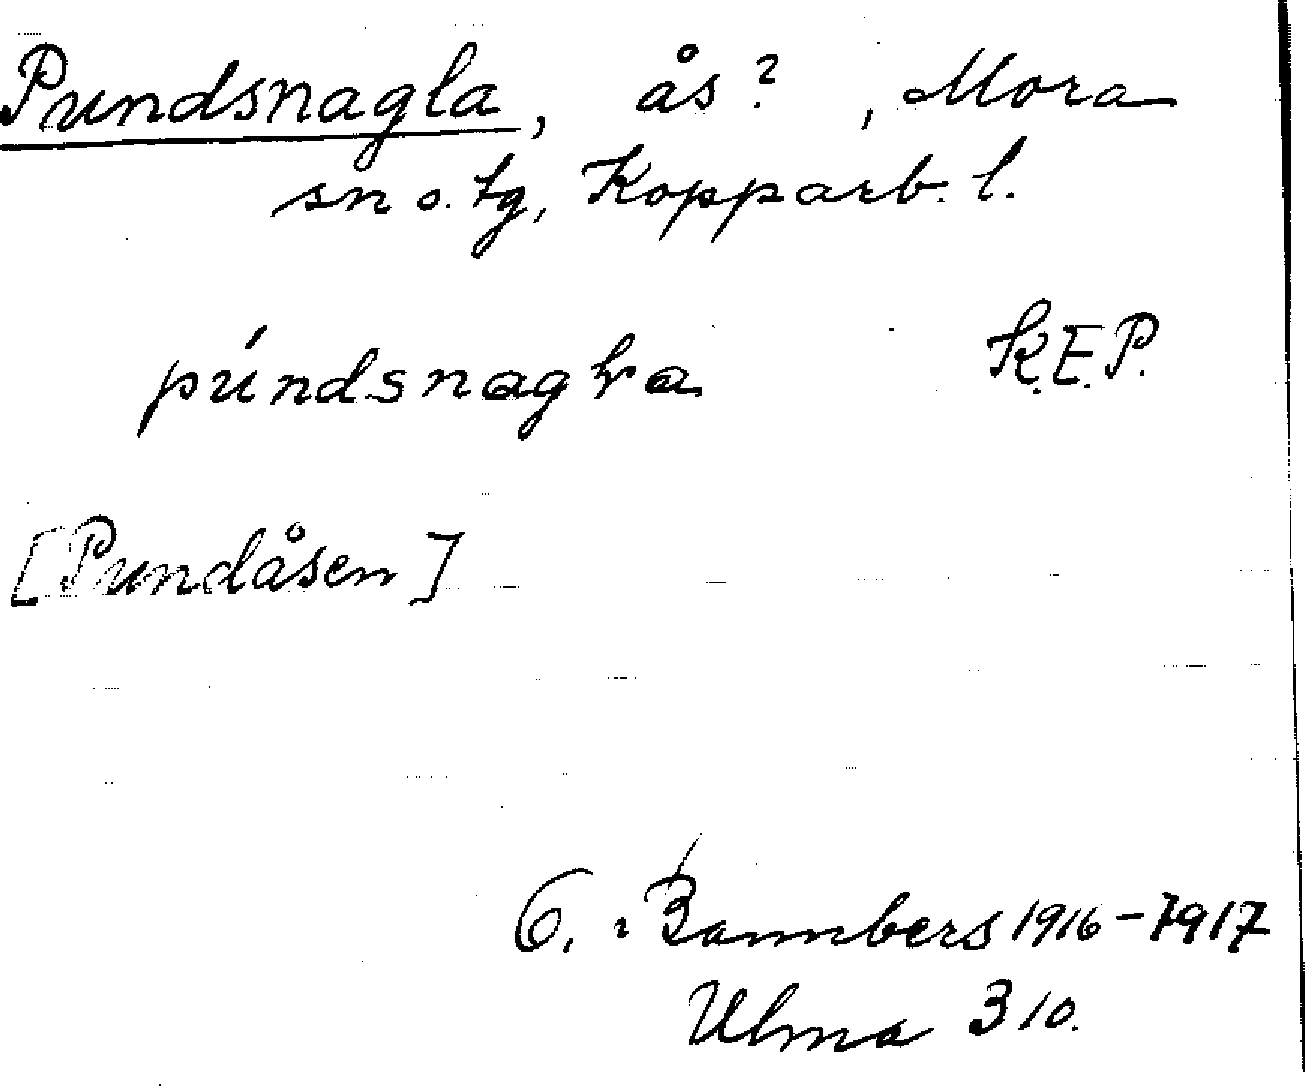 Pundsnagla, ås?, Mora
sn o. tg, Kopparb. l.
púndsnagła K.E.P.
[Pundåsen]
O. Bannbers 1916–1917
Ulma 310.